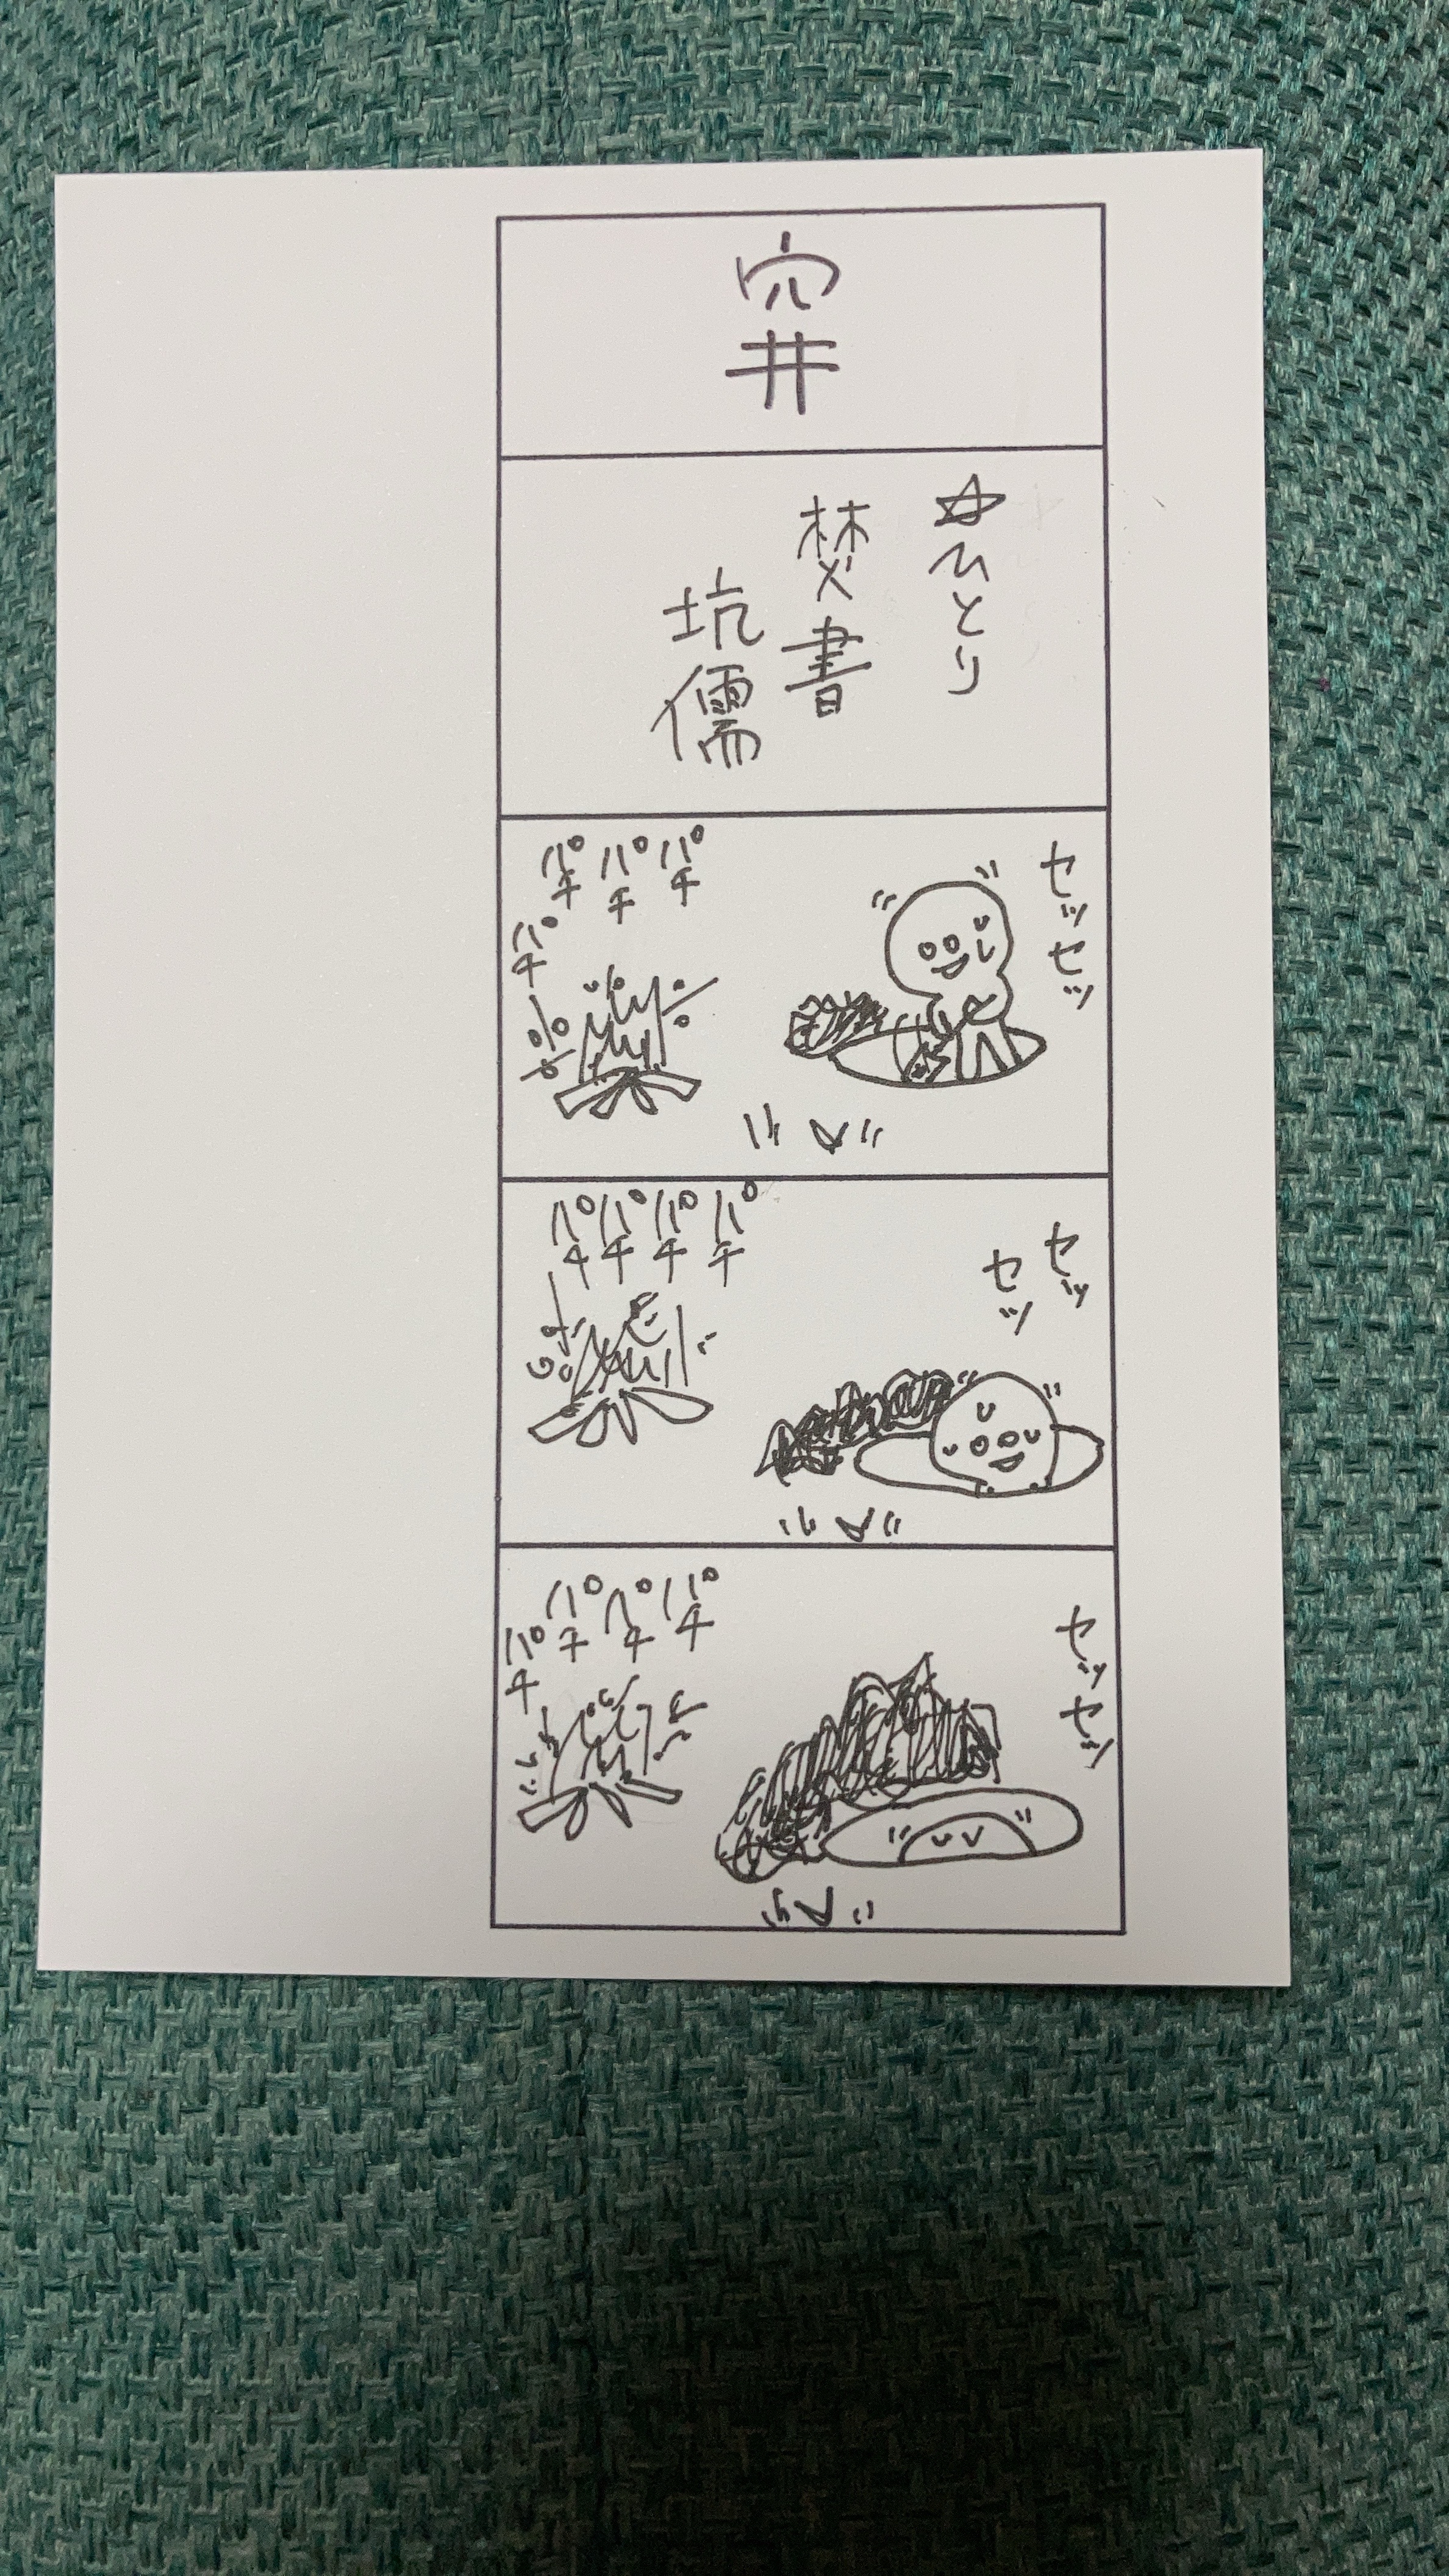 穽
☆ひとり
焚書
坑儒
セッセッ
パチ
パチ
パチ
パチ
セッ
セッ
パチ
パチ
パチ
パチ
セッセッ
パチ
パチ
パチ
パチ